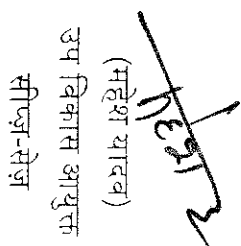 (महेश यादव)
उप विकास आयुक्त
सीप्ज़-सेज़